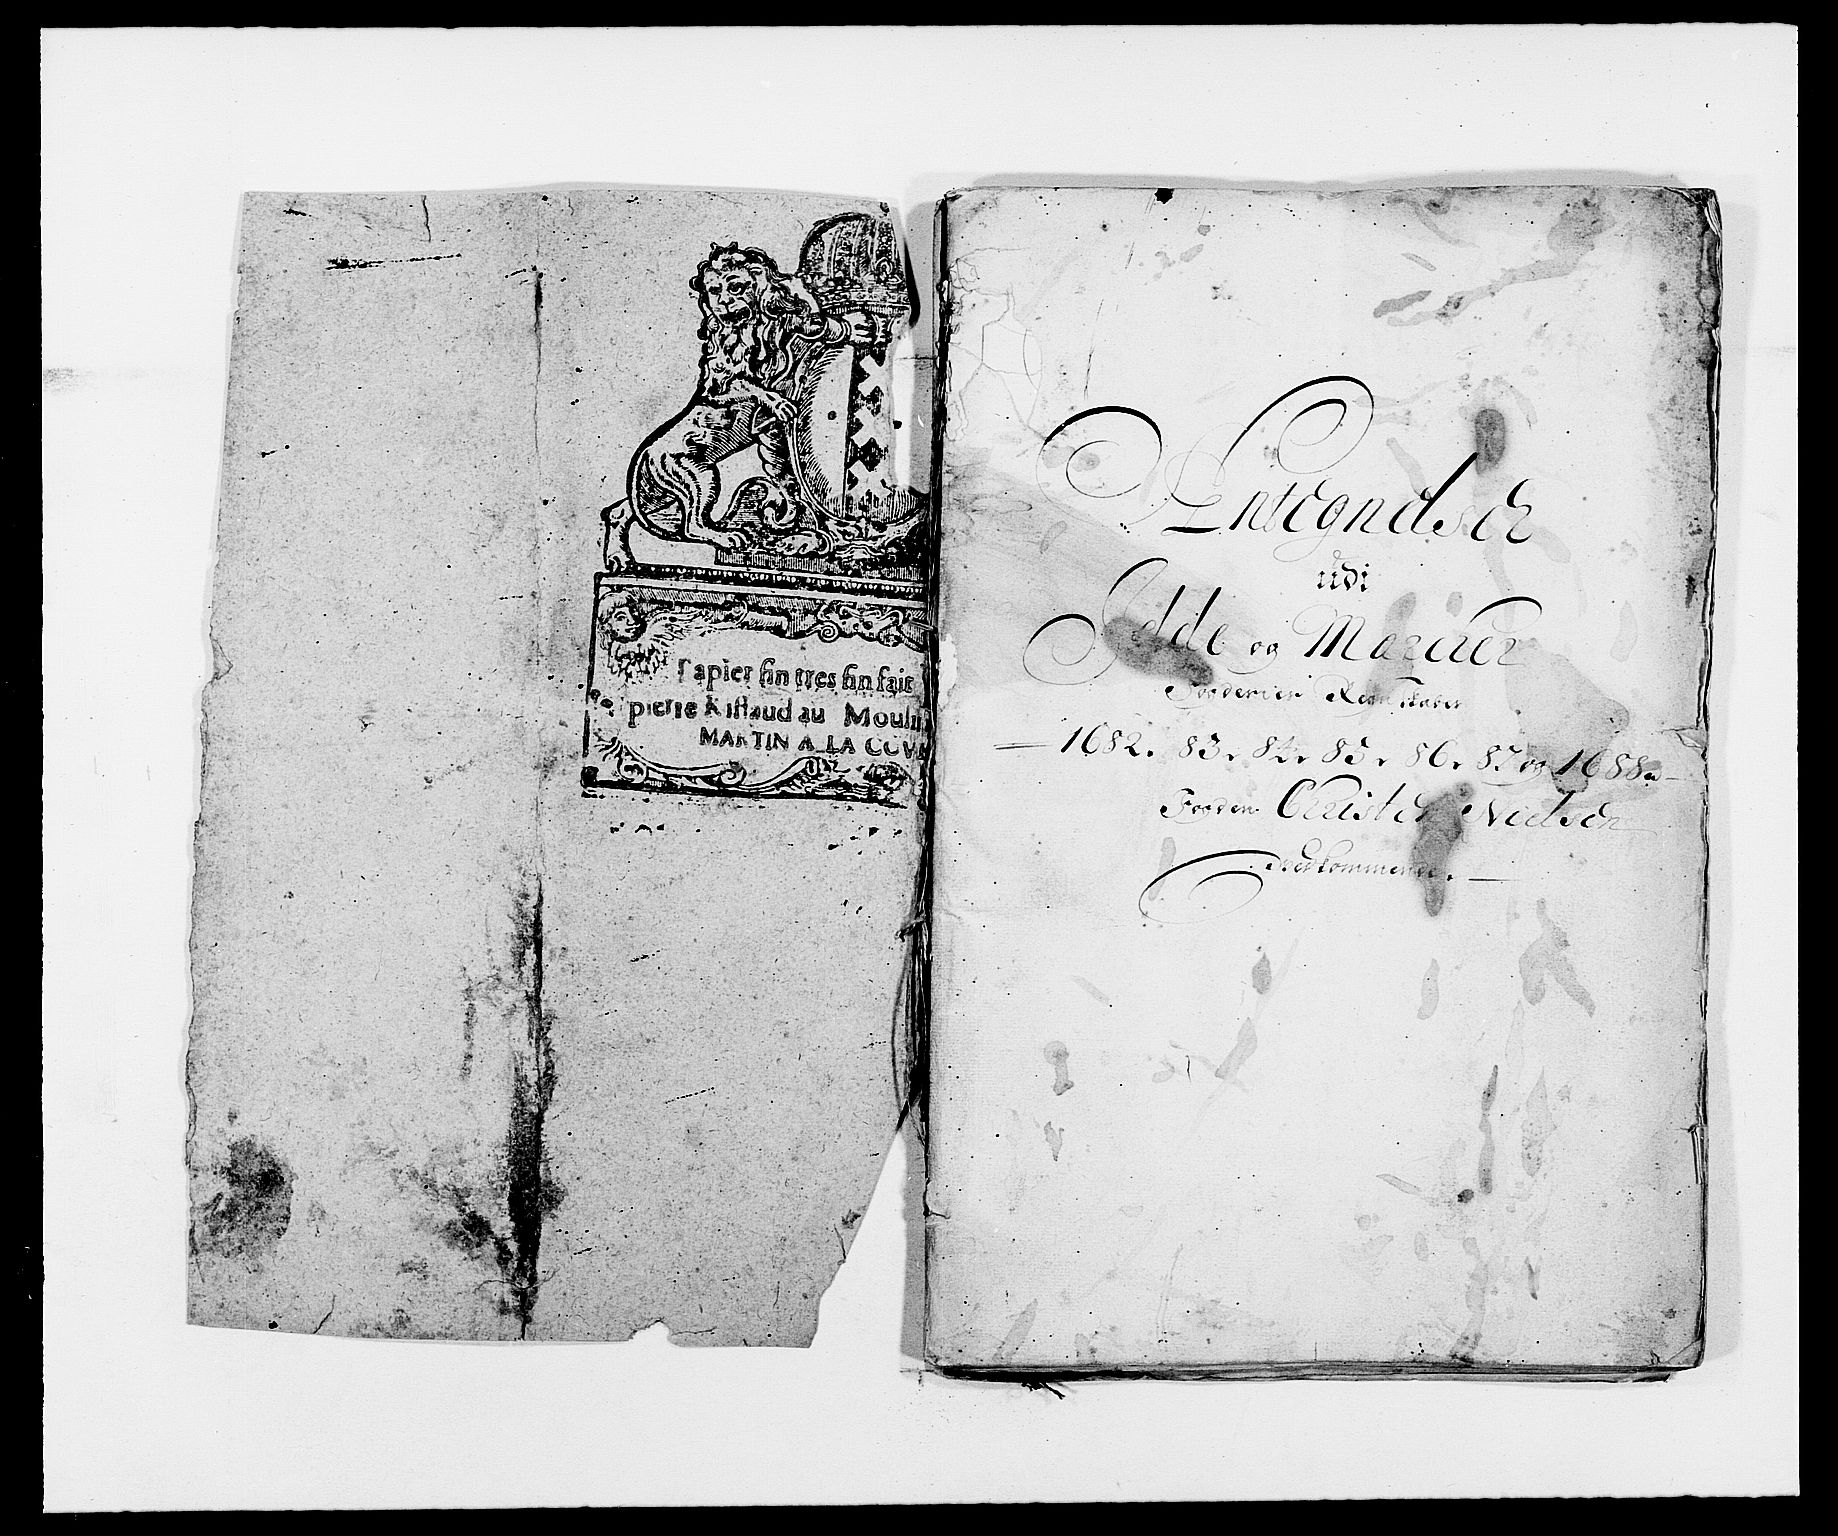 Papier fin tres fin fait
pierre Rissaud au Moulin
MARTIN A LA COV
Antegnelser
udi
Idde og Marcker
Fogderies Regnskaber
1682. 83. 84. 85. 86. 87 og 1688.
Fogden Christen Nielsen
Vedkommende.